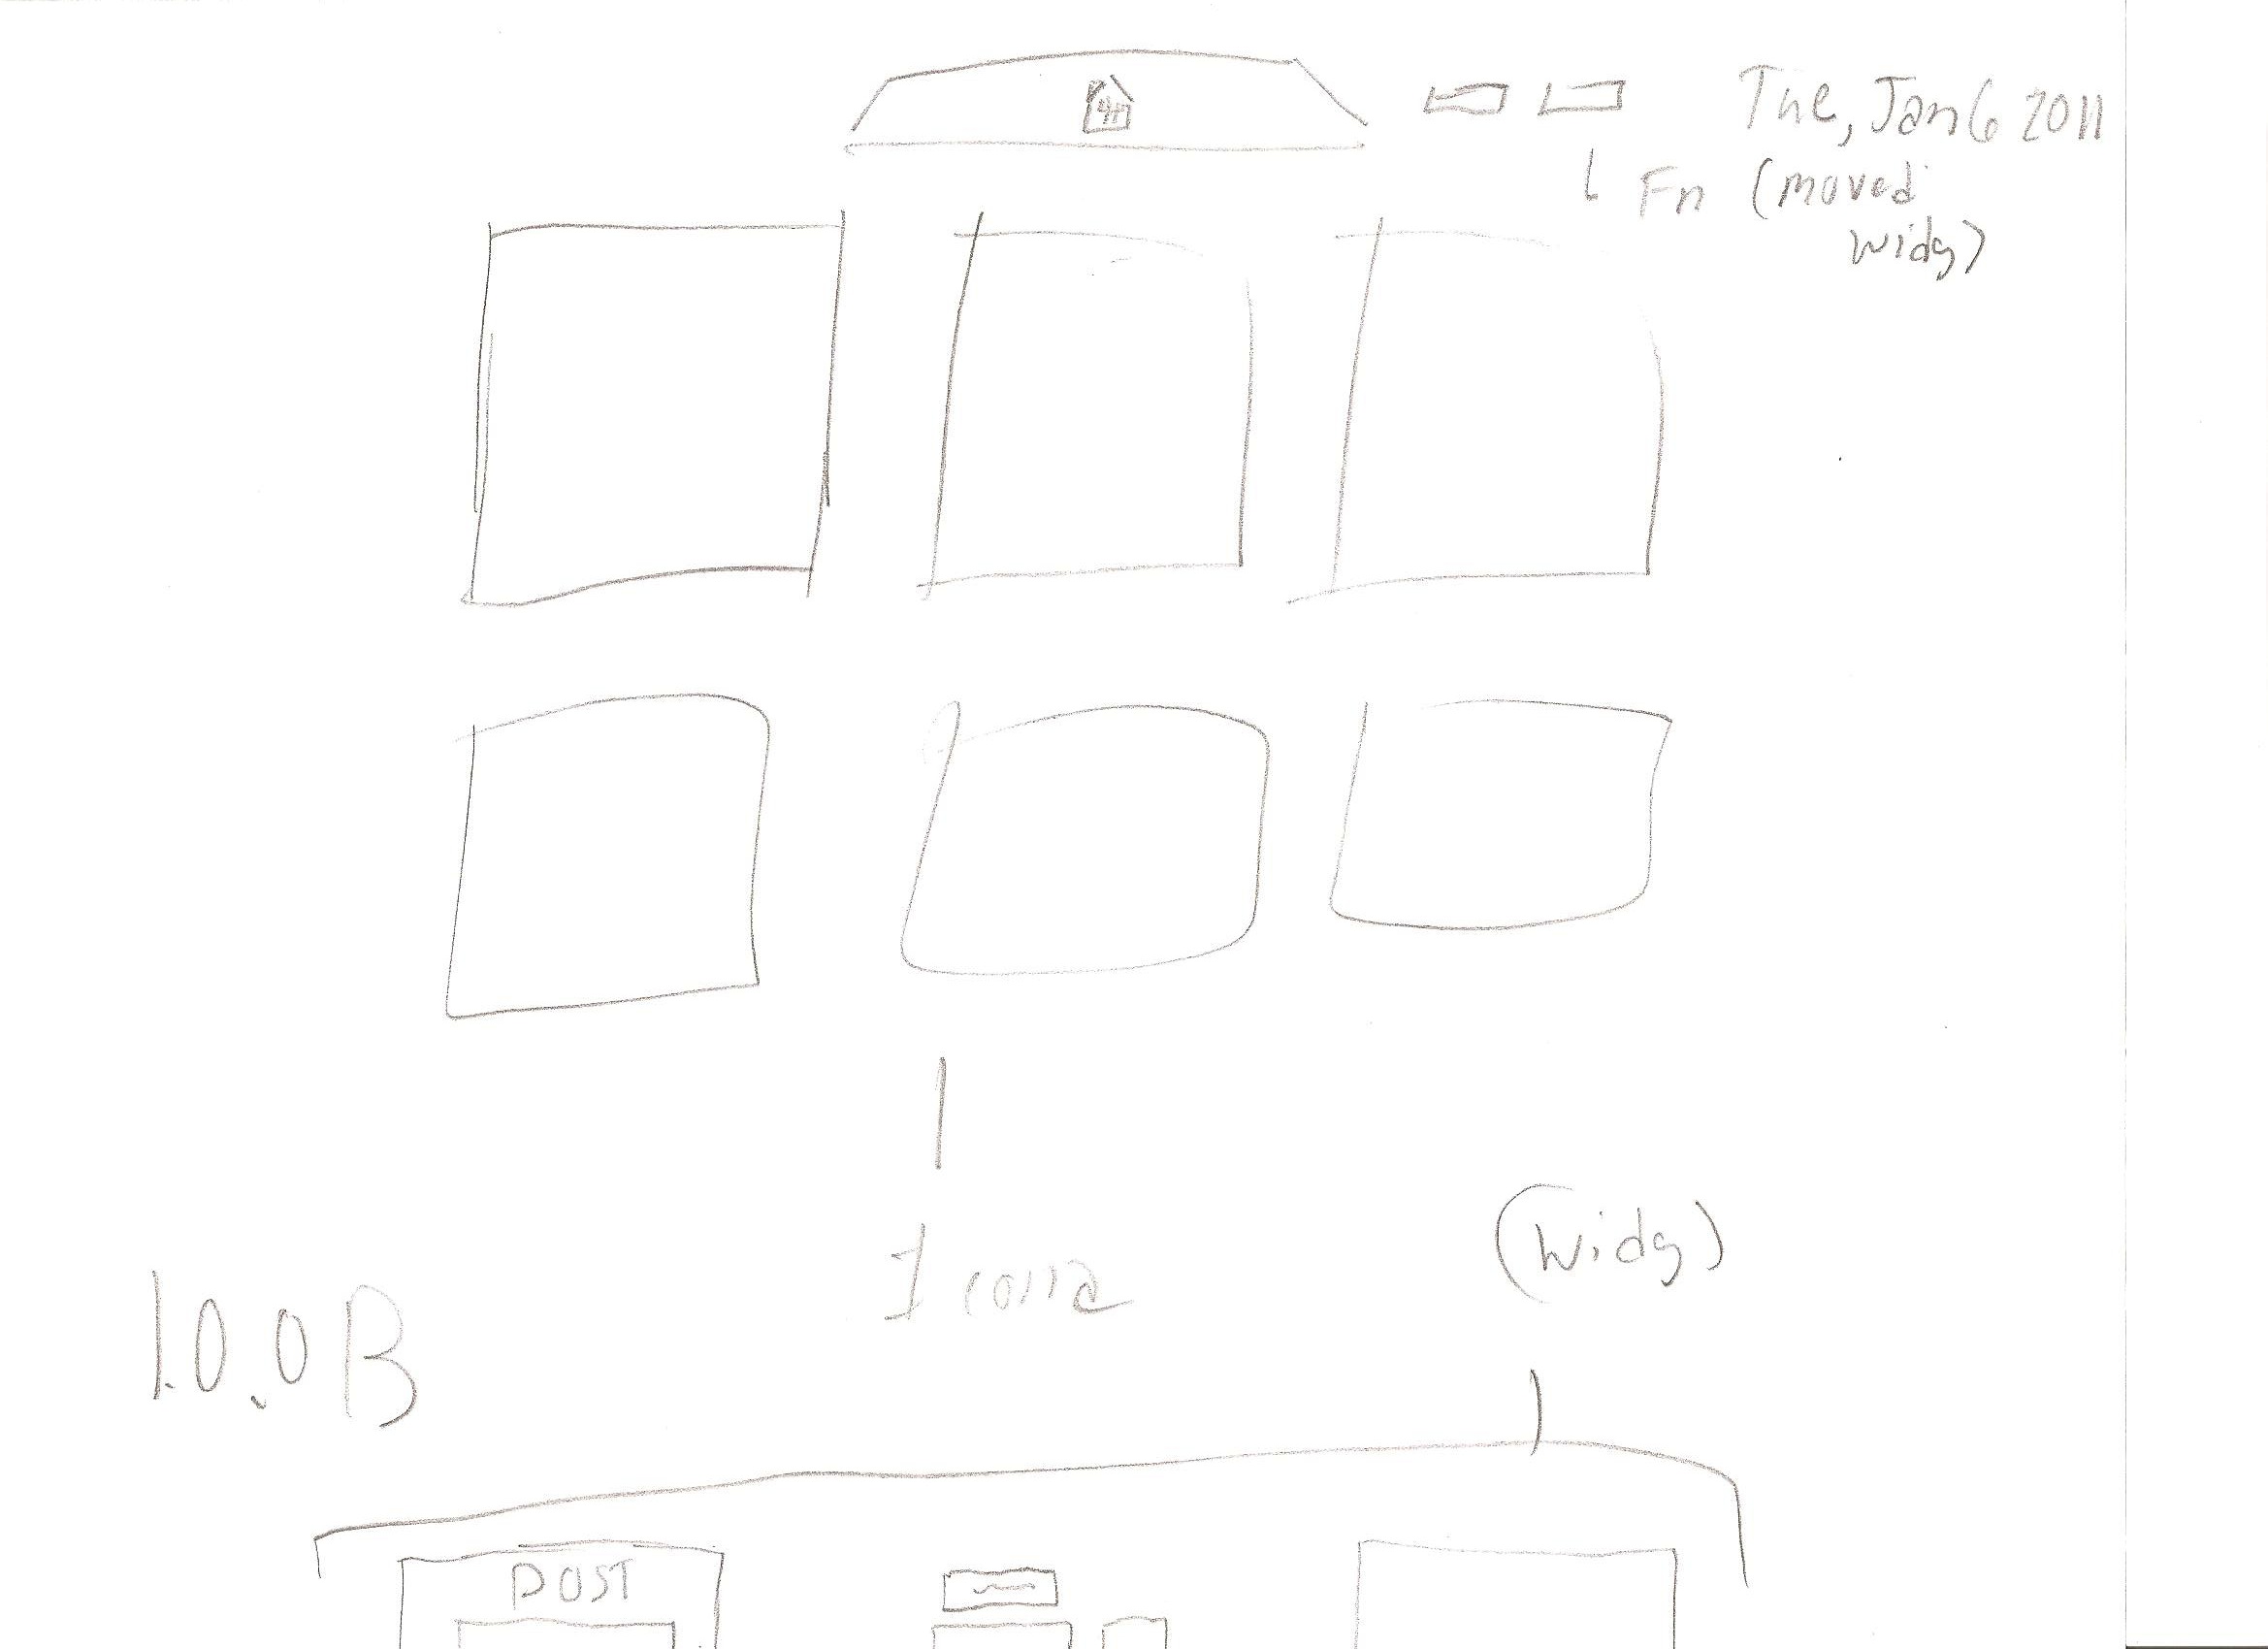 Tue, Jan 6 2011
Fn (moved
widg)
(widg)
1.0.0B
POST